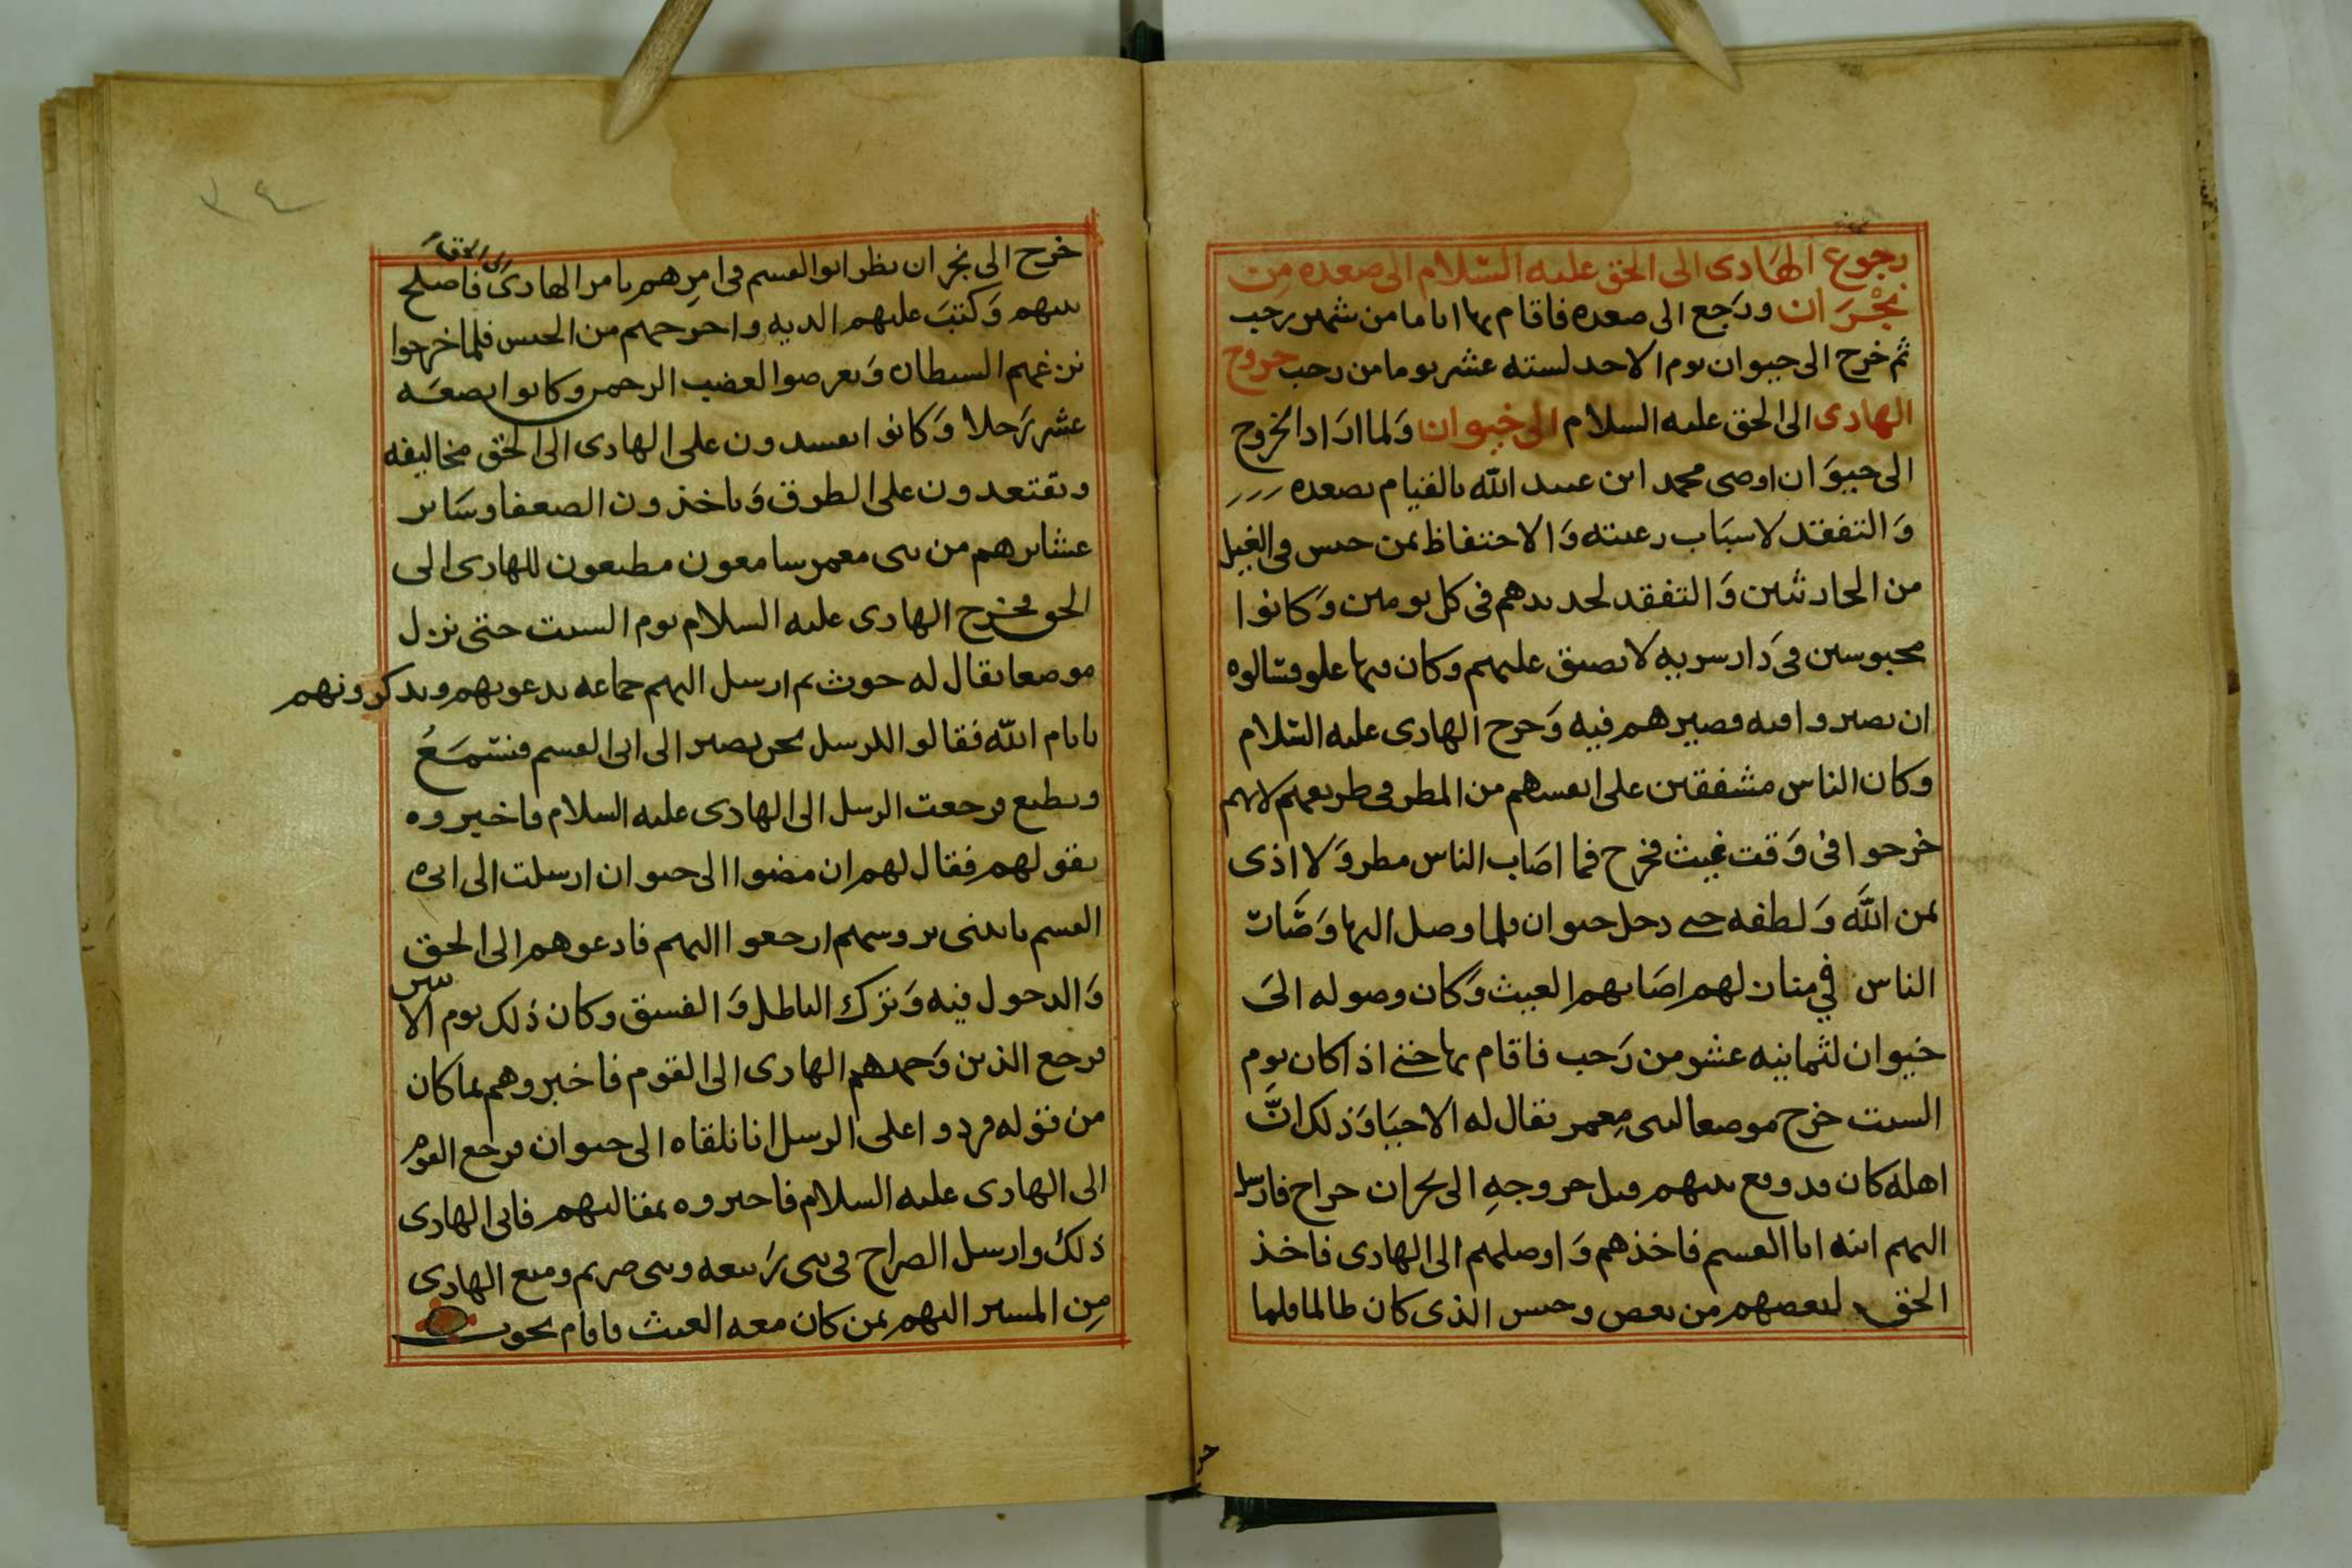 رجوع الهادى الى الحق عليه السلام الى صعده من
نجران ورجع الى صعده فاقام بها اياما من شهر رجب
ثم خرج الى خيوان يوم الاحد لسته عشر يوما من رجب خروج
الهادى الى الحق عليه السلام الى خيوان ولما اراد الخروج
الى خيوان اوصى محمد ابن عبيد الله بالقيام بصعده
والتفقد لاسباب رعيته والاحتفاظ بمن حبس فى الغيل
من الحارثيين والتفقد لحديدهم فى كل يومين وكانوا
محبوسين فى دار سريه لا يضيق عليهم وكان فيها علو فسالوه
ان يصيروا فيه فصيرهم فيه وخرج الهادى عليه السلام
وكان الناس مشفقين على انفسهم من المطر فى طريقهم لانهم
خرجوا فى وقت غيث فخرج فما اصاب الناس مطر ولا اذى
بمن الله ولطفه حتى دخل خيوان فلما وصل اليها وصات
الناس فى منازلهم اصابهم الغيث وكان وصوله الى
خيوان لثمانيه عشر من رجب فاقام بها حتى اذا كان يوم
السبت خرج موضعا لبنى معمر يقال له الاحبا وذلك ان
اهله كان قد وقع بينهم قبل خروجه الى نجران جراح فارسل
اليهم ابنه ابا القسم فاخذهم واوصلهم الى الهادى فاخذ
الحق لبعضهم من بعض وحبس الذى كان ظالما فلما
خرج الى نجران نظر ابو القسم فى امرهم بامر الهادى الى الحق فاصلح
بينهم وكتب عليهم الديه واخرجهم من الحبس فلما خرجوا
نزغهم الشيطان وتعرضوا لغضب الرحمن وكانوا بضعه
عشر رجلا وكانوا يفسدون على الهادى الى الحق مخاليفه
ويقتعدون على الطرق وياخذون الضعفا وساير
عشايرهم من بنى معمر سامعون مطيعون للهادى الى
الحق فخرج الهادى عليه السلام يوم السبت حتى نزل
موضعا يقال له حوث ثم ارسل اليهم جماعه يدعونهم ويذكرونهم
بايام الله فقالوا للرسل نحن نصير الى ابى القسم فنسمع
ونطيع فرجعت الرسل الى الهادى عليه السلام فاخبروه
بقولهم فقال لهم ان مضوا الى خيوان ارسلت الى ابى
القسم ياتينى بروسهم ارجعوا اليهم فادعوهم الى الحق
والدخول فيه وترك الباطل والفسق وكان ذلك يوم الاثنين
فرجع الذين وجههم الهادى الى القوم فاخبروهم بما كان
من قوله فردوا على الرسل انا نلقاه الى خيوان فرجع القوم
الى الهادى عليه السلام فاخبروه بمقالتهم فابى الهادى
ذلك وارسل الصراخ فى بنى ربيعه وبنى صريم ومنع الهادى
من المسير اليهم بمن كان معه الغيث فاقام بحوث
٣٤